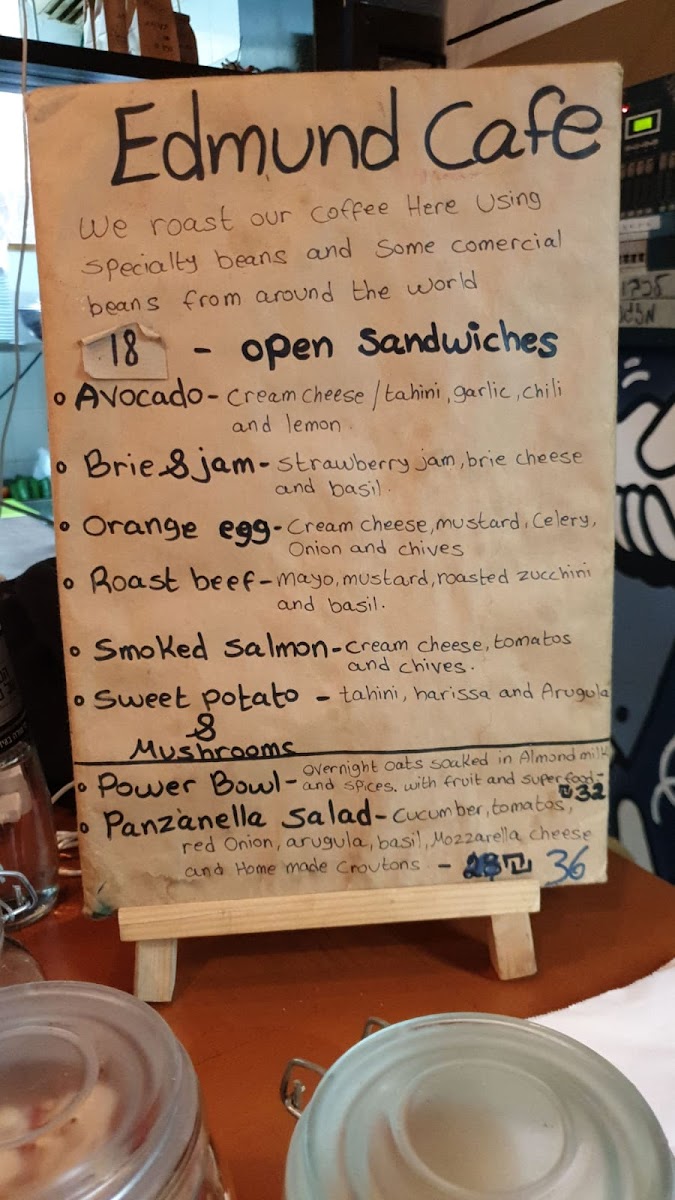 Edmund Cafe
We roast our coffee Here Using
specialty beans and some comercial
beans from around the world
18 - open sandwiches
Avocado - cream cheese / tahini, garlic, chili
and lemon.
Brie & jam - strawberry jam, brie cheese
and basil.
Orange egg - cream cheese, mustard, celery,
Onion and chives
Roast beef - mayo, mustard, roasted zucchini
and basil.
Smoked salmon - cream cheese, tomatos
and chives.
Sweet potato - tahini, harissa and Arugula
&
Mushrooms
Power Bowl - overnight oats soaked in Almond milk
and spices. with fruit and superfood -
₪32
Panzanella salad - cucumber, tomatos,
red Onion, arugula, basil, Mozzarella cheese
and Home made croutons - 28₪ 36